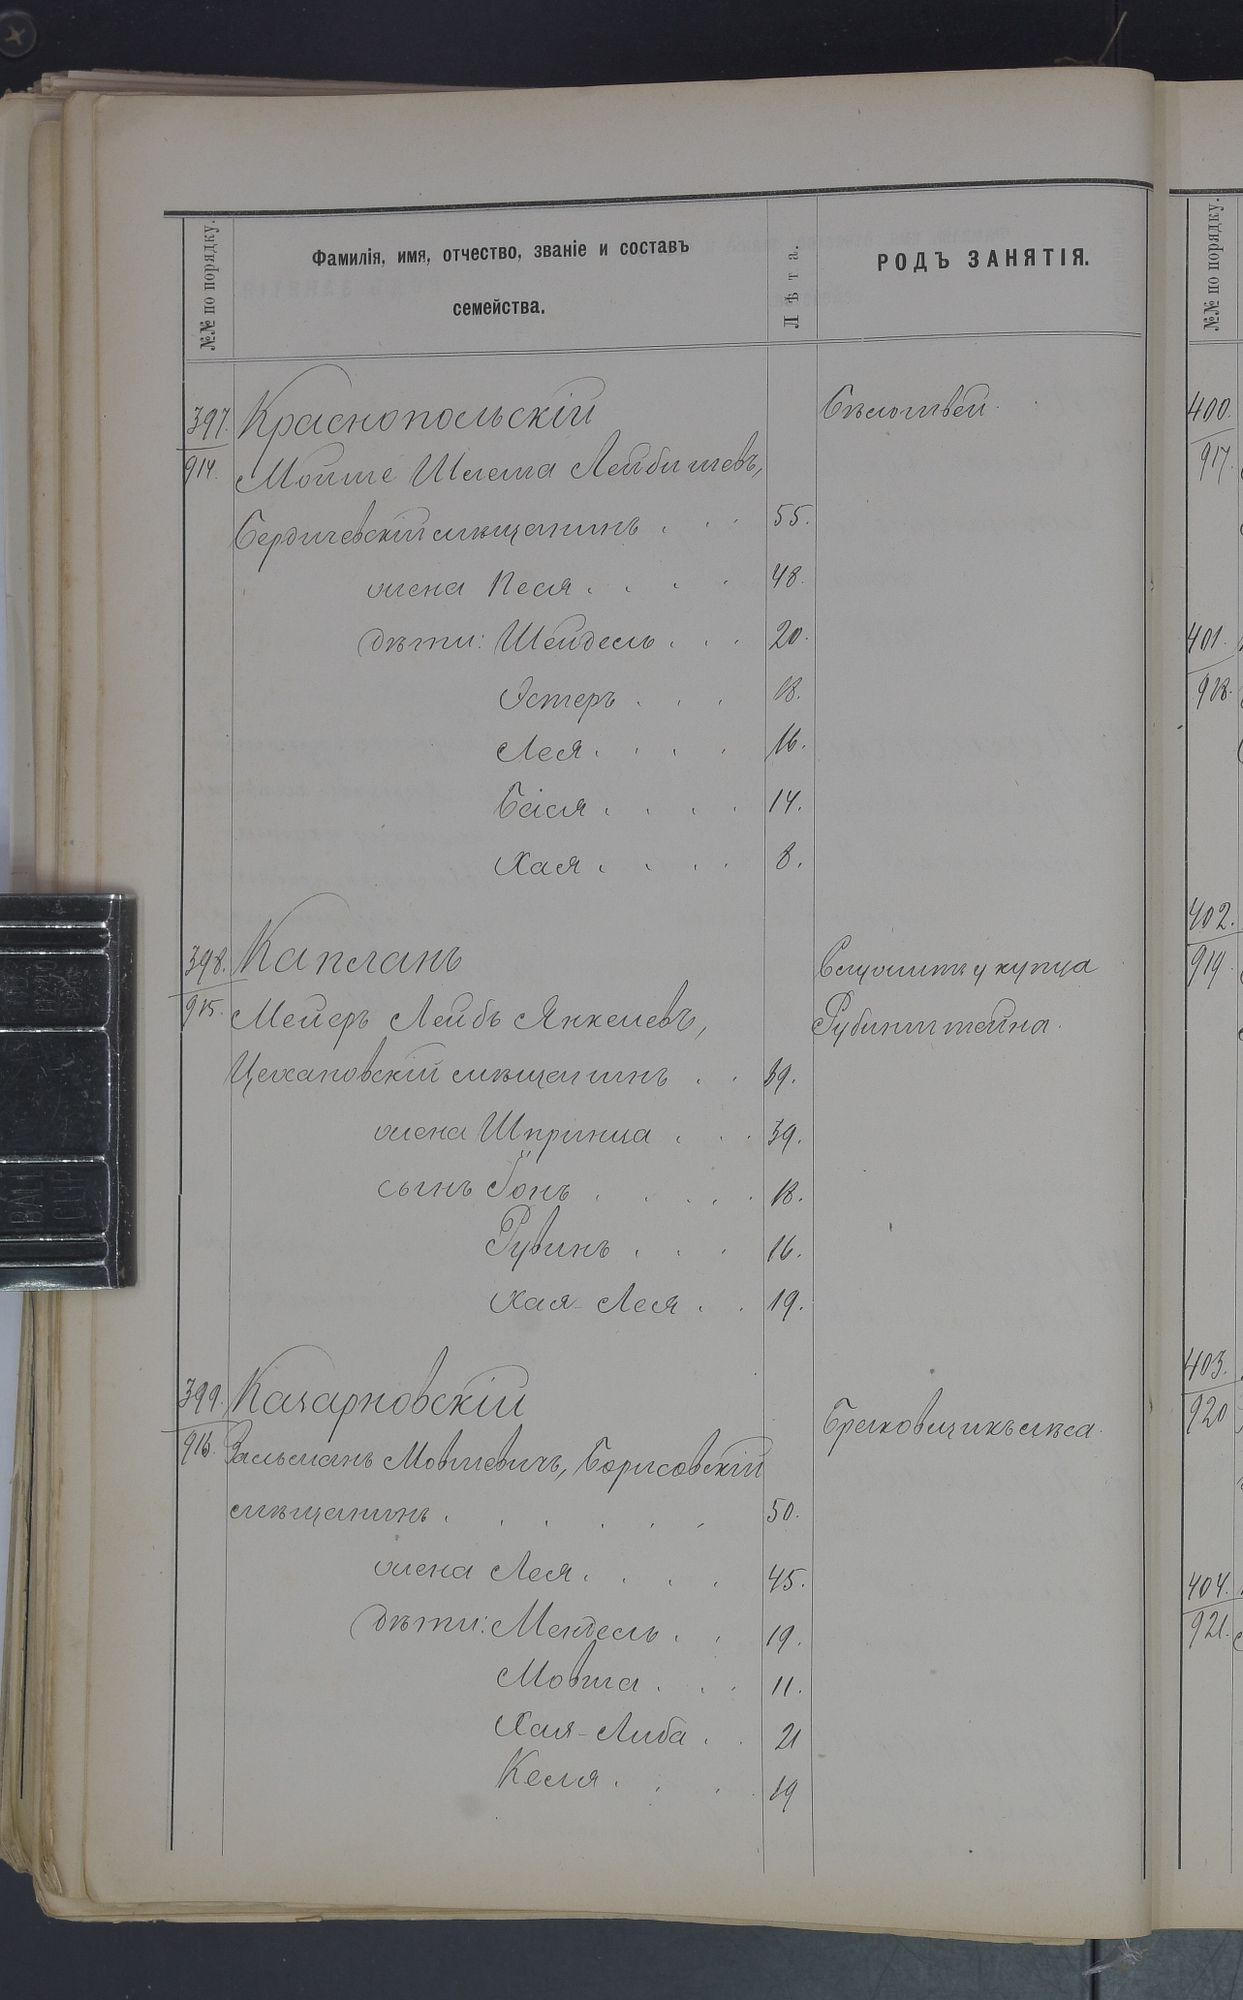 №№ по порядку.
Фамилія, имя, отчество, званіе и составъ
семейства.
Лѣта.
РОДЪ ЗАНЯТІЯ.
397.
914.
Краснопольскій
Бѣлошвеи.
Мойше Шлема Лейбишевъ,
Бердичевскій мѣщанинъ . . . 55.
жена Песя . . . . 48.
дѣти: Шейдель . . . 20.
Эстеръ . . . 18.
Лея . . . . 16.
Бася . . . . 14.
Хая . . . . 8.
398.
915.
Капланъ
Служитъ у купца
Мейеръ Лейбъ Янкелевъ,
Рубинштейна.
Цехановскій мѣщанинъ . . 39.
жена Шпринца . . . 39.
сынъ Іонъ . . . . . 18.
Рувинъ . . . 16.
Хая-Лея . . 19.
399.
916.
Качарновскій
Браковщикъ лѣса.
Зальманъ Мовшевичъ, Борисовскій
мѣщанинъ . . . . . . 50.
жена Лея . . . . 45.
дѣти: Мендель . . 19.
Мовша . . . 11.
Хая-Либа . . 21
Келя . . . . 19
№№ по порядку.
400.
917.
401.
918.
402.
919
403.
920
404.
921.